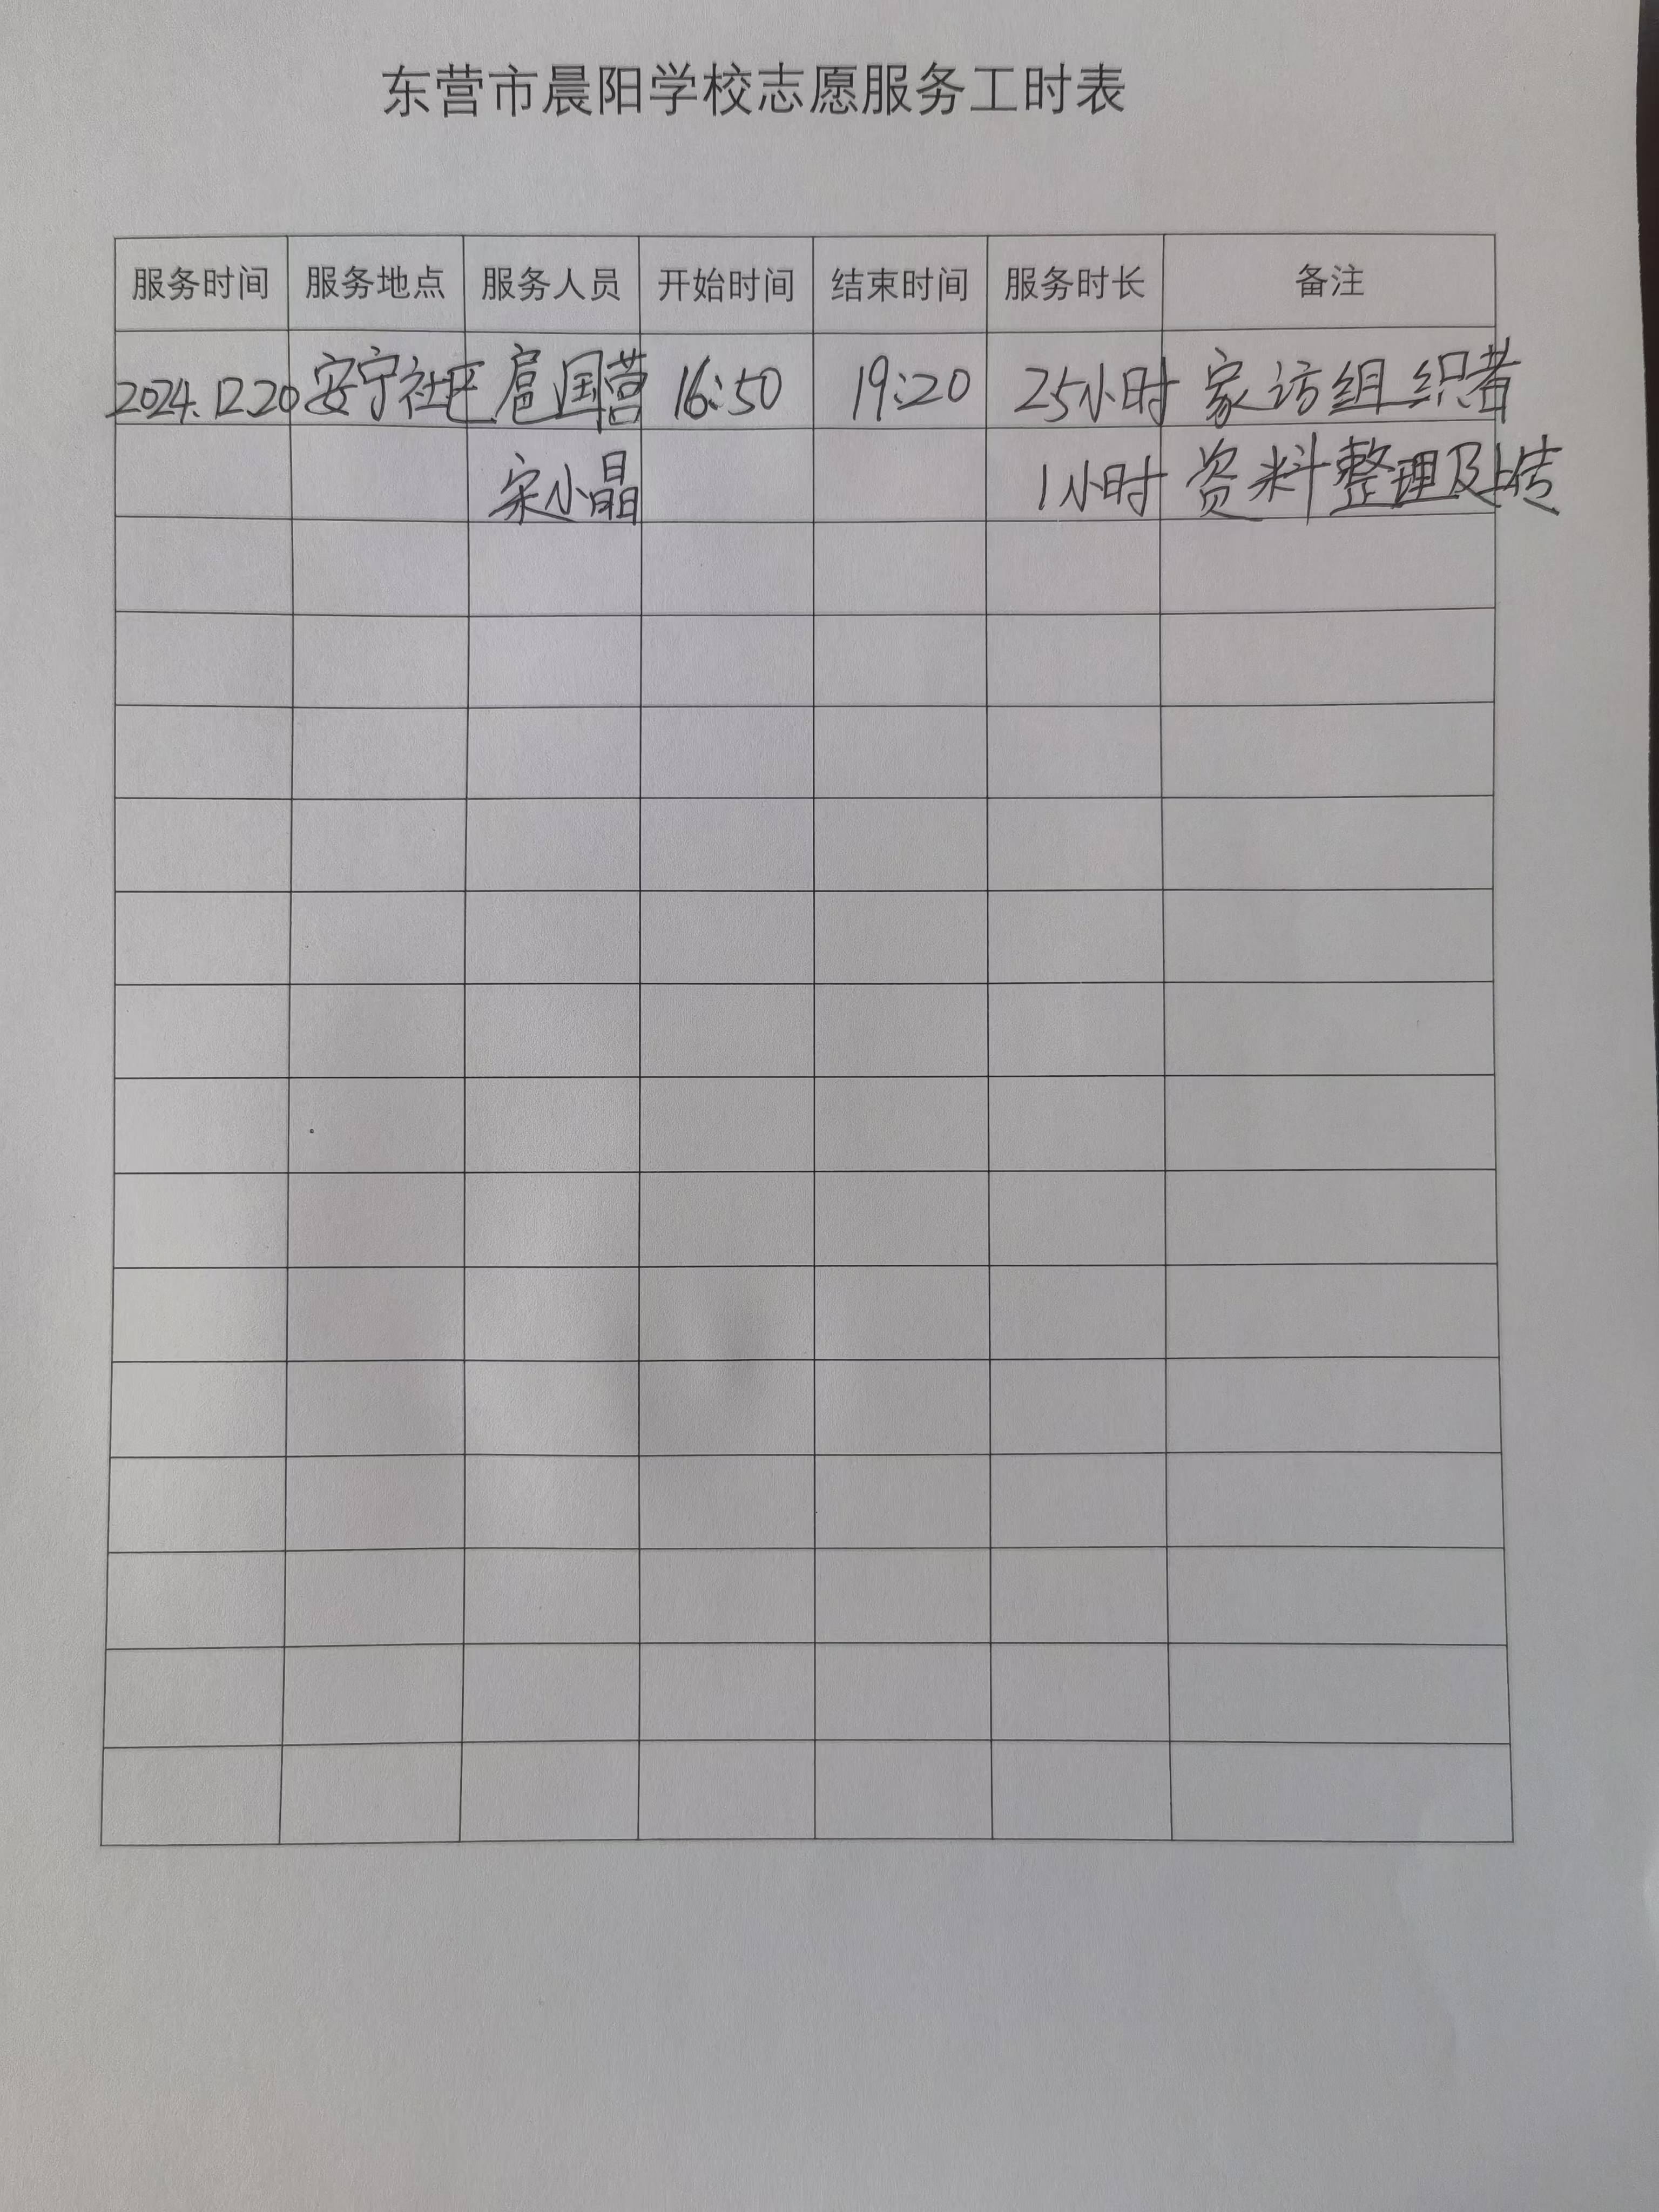 东营市晨阳学校志愿服务工时表
服务时间 服务地点 服务人员 开始时间 结束时间 服务时长 备注
2024.12.20 安宁社区 扈国营 16:50 19:20 25小时 家访组织者
宋小晶 1小时 资料整理及上传